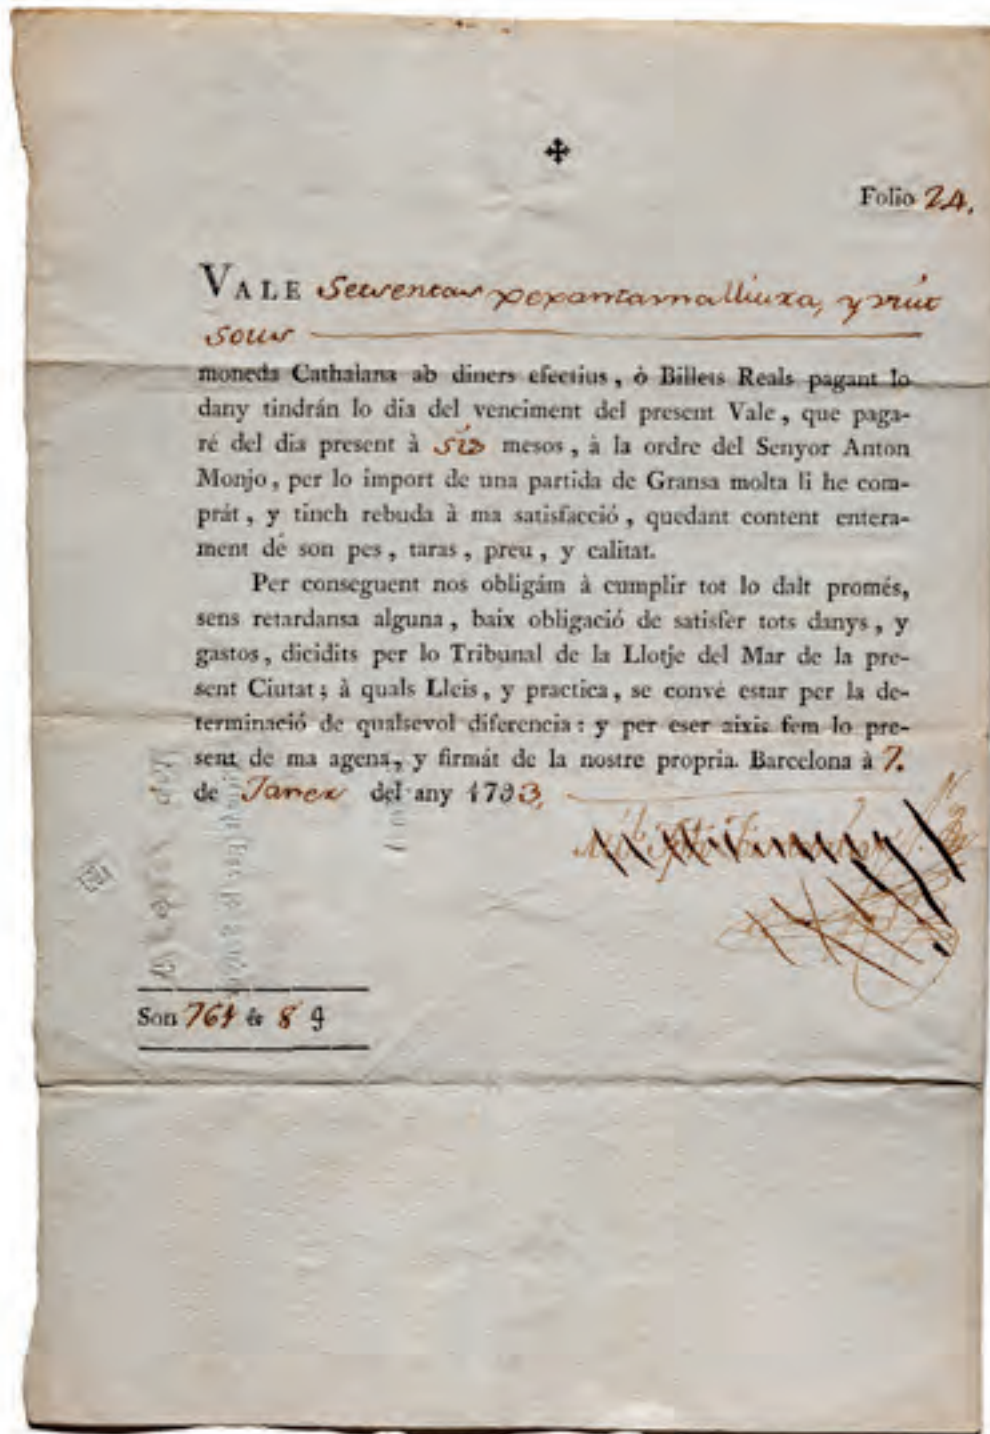 Folio 24.
VALE Setsentas xexantauna lliura, y vuit
sous
moneda Cathalana ab diners efectius, ò Billets Reals pagant lo
dany tindrán lo dia del venciment del present Vale, que paga-
ré del dia present à sis mesos, à la ordre del Senyor Anton
Monjo, per lo import de una partida de Gransa molta li he com-
prát, y tinch rebuda à ma satisfacció, quedant content entera-
ment de son pes, taras, preu, y calitat.
Per conseguent nos obligám à cumplir tot lo dalt promés,
sens retardansa alguna, baix obligació de satisfer tots danys, y
gastos, dicidits per lo Tribunal de la Llotje del Mar de la pre-
sent Ciutat; à quals Lleis, y practica, se convé estar per la de-
terminació de qualsevol diferencia: y per eser aixis fem lo pre-
sent de ma agena, y firmát de la nostre propria. Barcelona à 7.
de Janer del any 1793.
Son 761 8